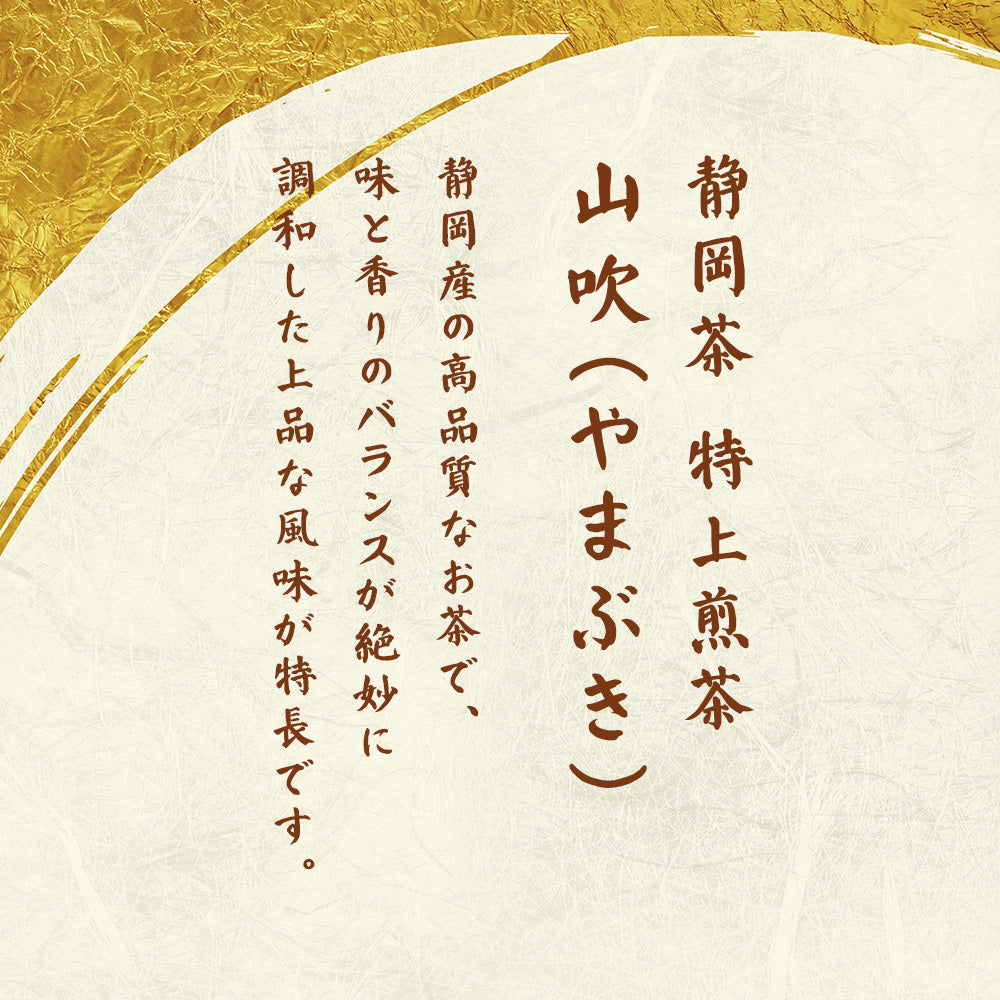 静岡茶　特上煎茶
山吹（やまぶき）
静岡産の高品質なお茶で、
味と香りのバランスが絶妙に
調和した上品な風味が特長です。